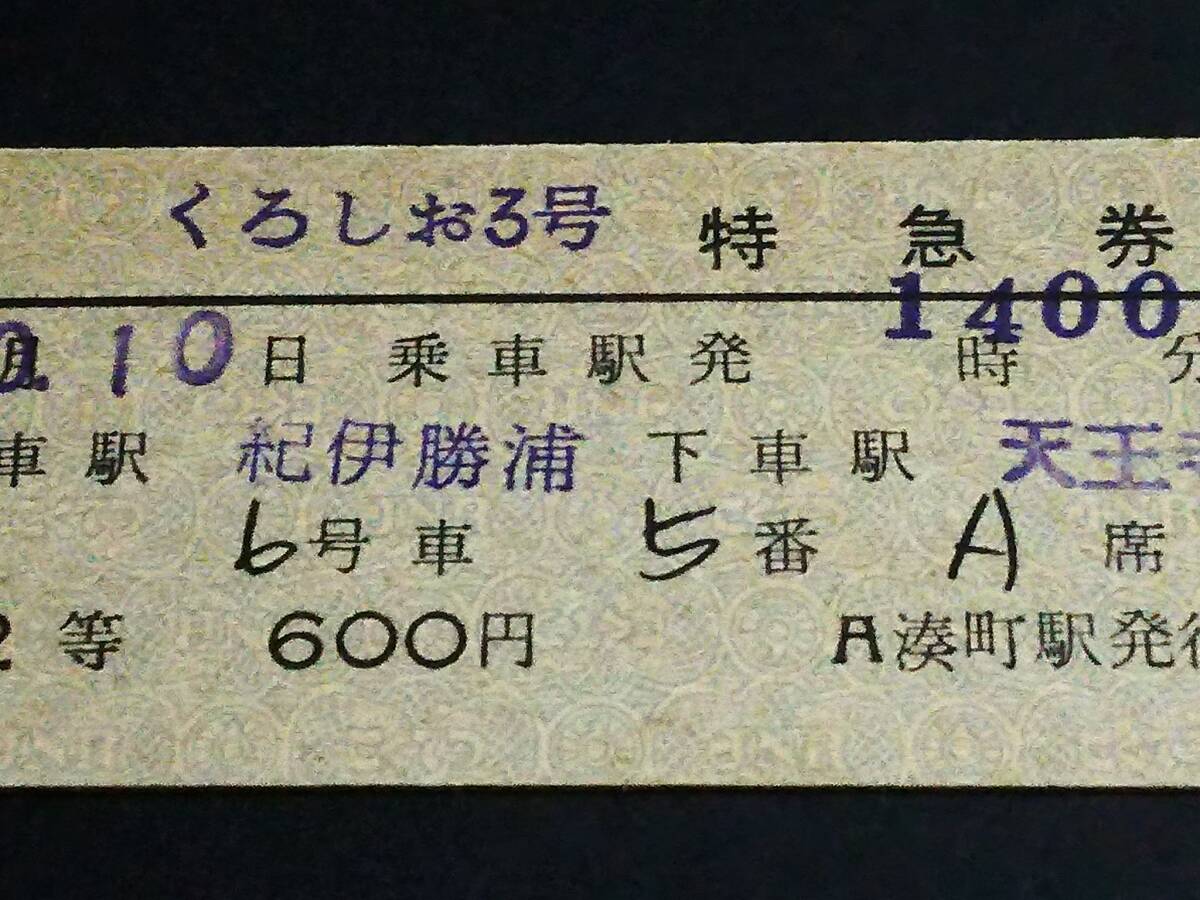 くろしお3号 特急券
1400
月 10日 乗車駅発 時 分
車駅 紀伊勝浦 下車駅 天王
6号車 5番 A席
2等 600円 A湊町駅発行